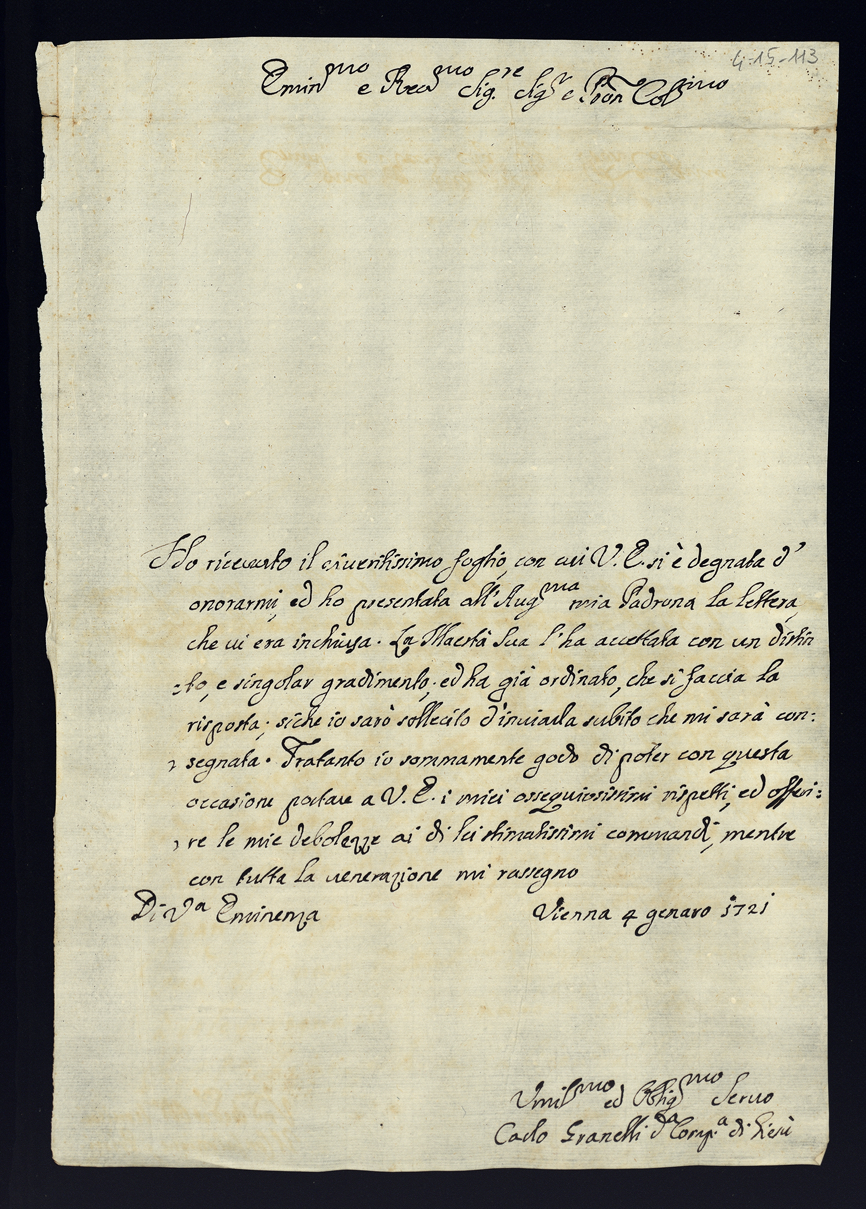 4-15-113
Emin.mo e Rev.mo Sig.re Sig.r e Pron Col.mo
Ho riceuuto il riueritissimo foglio, con cui V. E. si è degnata d'
onorarmi, ed ho presentata all'Aug.ma mia Padrona la lettera,
che ui era inchiusa. La Maestà Sua l'ha accettata con un distin
:to, e singolar gradimento, ed ha già ordinato, che si faccia la
risposta; siche io sarò sollecito d'inuiarla subito che mi sarà con:
segnata. Tratanto io sommamente godo di poter con questa
occasione portare a V. E. i miei ossequiosissimi rispetti, ed offeri:
re le mie debolezze ai di lei stimatissimi commandi, mentre
con tutta la uenerazione mi rassegno
Di V.a Eminenza Vienna 4 genaro 1721
Umil.mo ed Oblig.mo Seruo
Carlo Granelli d.a Comp.a di Giesù